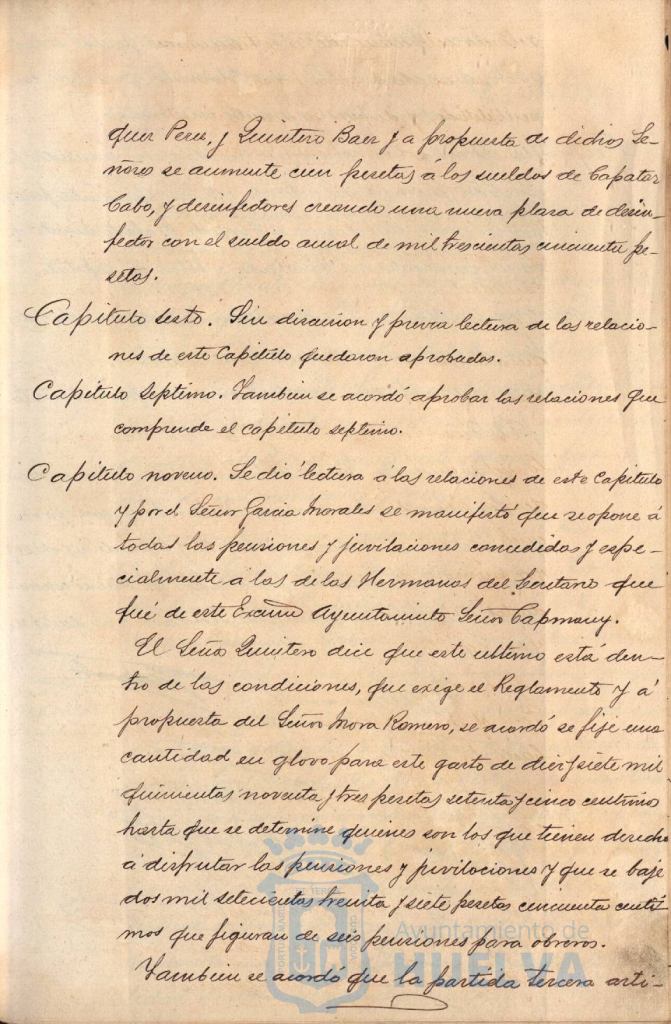 quez Perez, y Quintero Baez y a propuesta de dichos Se-
ñores se aumente cien pesetas á los sueldos de Capataz
Cabo, y desinfectores creando una nueva plaza de desin-
fector con el sueldo anual de mil trescientas cincuenta pe-
setas.
Capitulo sexto. Sin discusion y previa lectura de las relacio-
nes de este Capitulo quedaron aprobadas.
Capitulo septimo. Tambien se acordó aprobar las relaciones que
comprende el capitulo septimo.
Capitulo noveno. Se dió lectura á las relaciones de este Capitulo
y por el Señor Garcia Morales se manifestó que se opone á
todas las pensiones y juvilaciones concedidas y espe-
cialmente á las de las Hermanas del Secretario que
fué de este Excmo Ayuntamiento Señor Capmany.
El Señor Quintero dice que este ultimo está den-
tro de las condiciones, que exige el Reglamento y á
propuesta del Señor Mora Romero, se acordó se fije una
cantidad en glovo para este gasto de diez y siete mil
quinientas noventa y tres pesetas setenta y cinco centimos
hasta que se determine quienes son los que tienen derecho
á disfrutar las pensiones y juvilaciones y que se baje
dos mil setecientas treinta y siete pesetas cincuenta centi-
mos que figuran de seis pensiones para obreros.
Tambien se acordó que la partida tercera arti-
Ayuntamiento de
HUELVA